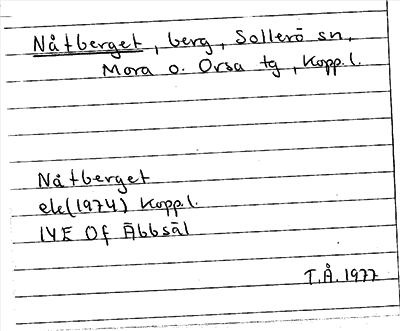 Nåtberget, berg, Sollerö sn,
Mora o. Orsa tg, Kopp.l.
Nåtberget
ek(1974) Kopp.l.
14E Of Äbbsäl
T.Å. 1977